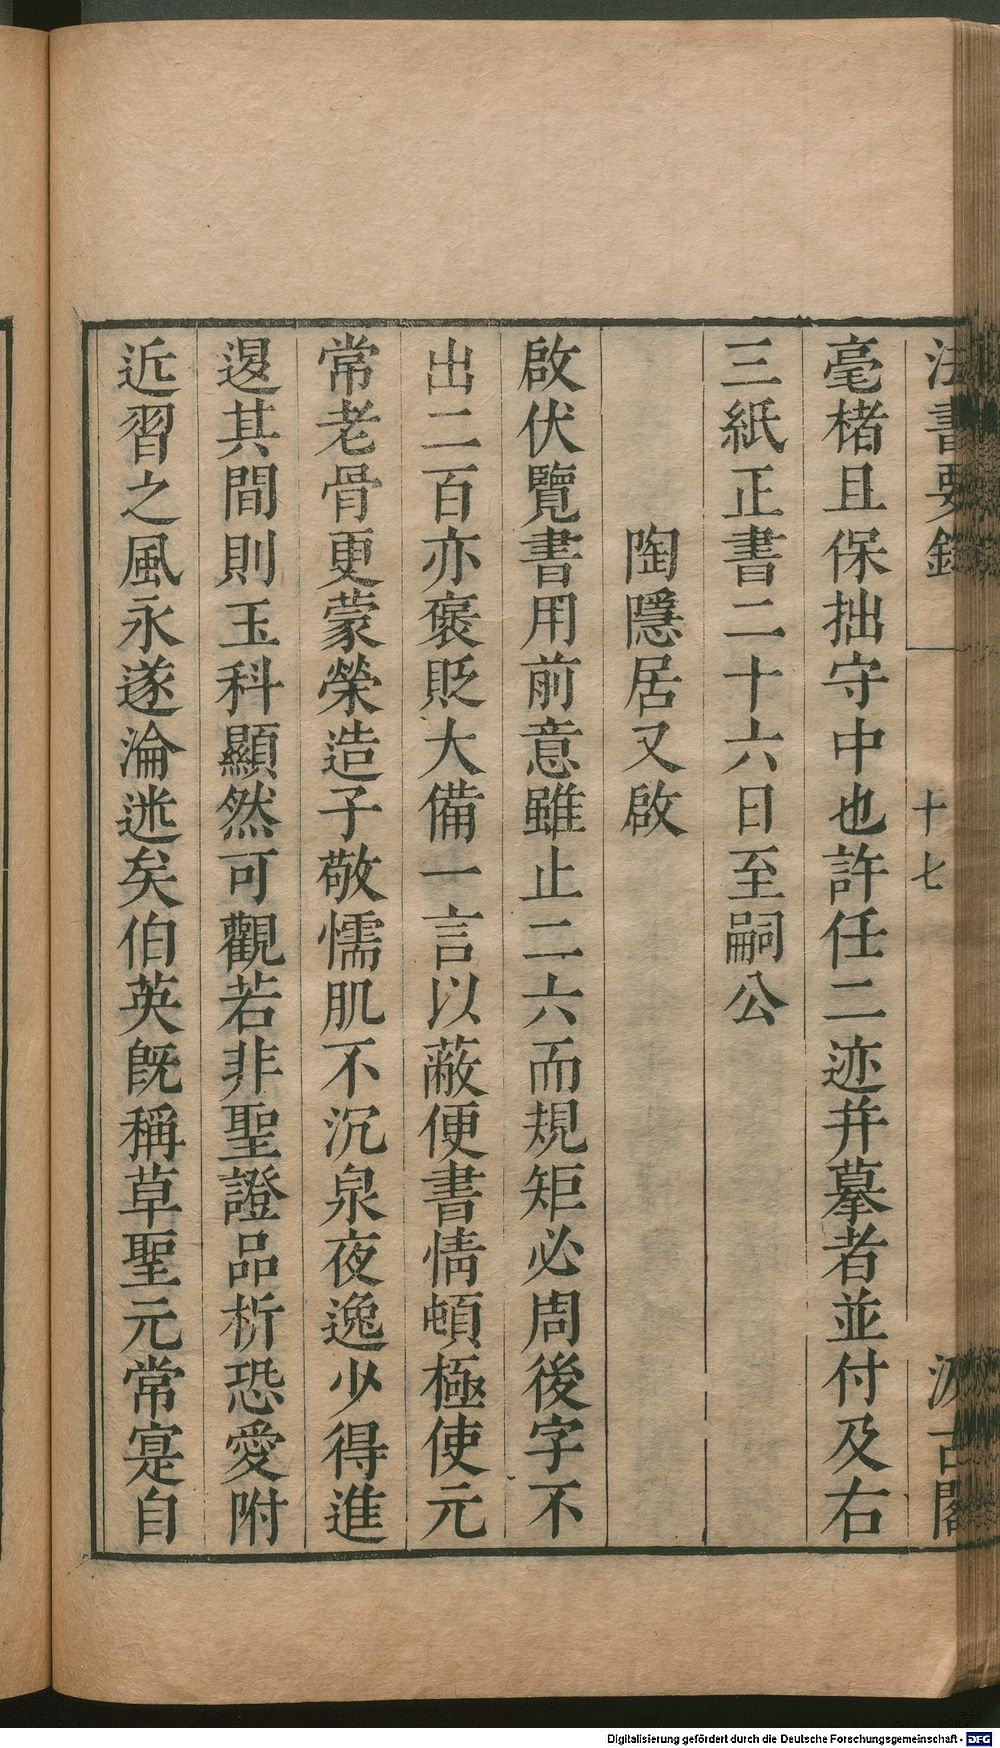 法書要錄
十七
汲古閣
毫楮且保拙守中也許任二迹并摹者並付及右
三紙正書二十六日至嗣公
陶隱居又啟
啟伏覽書用前意雖止二六而規矩必周後字不
出二百亦褒貶大備一言以蔽便書情頓極使元
常老骨更蒙榮造子敬懦肌不沉泉夜逸少得進
退其間則玉科顯然可觀若非聖證品析恐愛附
近習之風永遂淪迷矣伯英旣稱草聖元常寔自
Digitalisierung gefördert durch die Deutsche Forschungsgemeinschaft - DFG